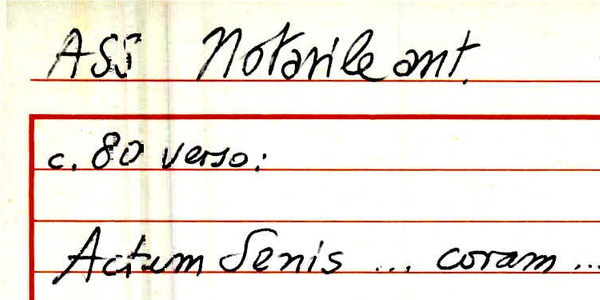 ASS Notarile ant.
c. 80 verso:
Actum Senis ... coram ...